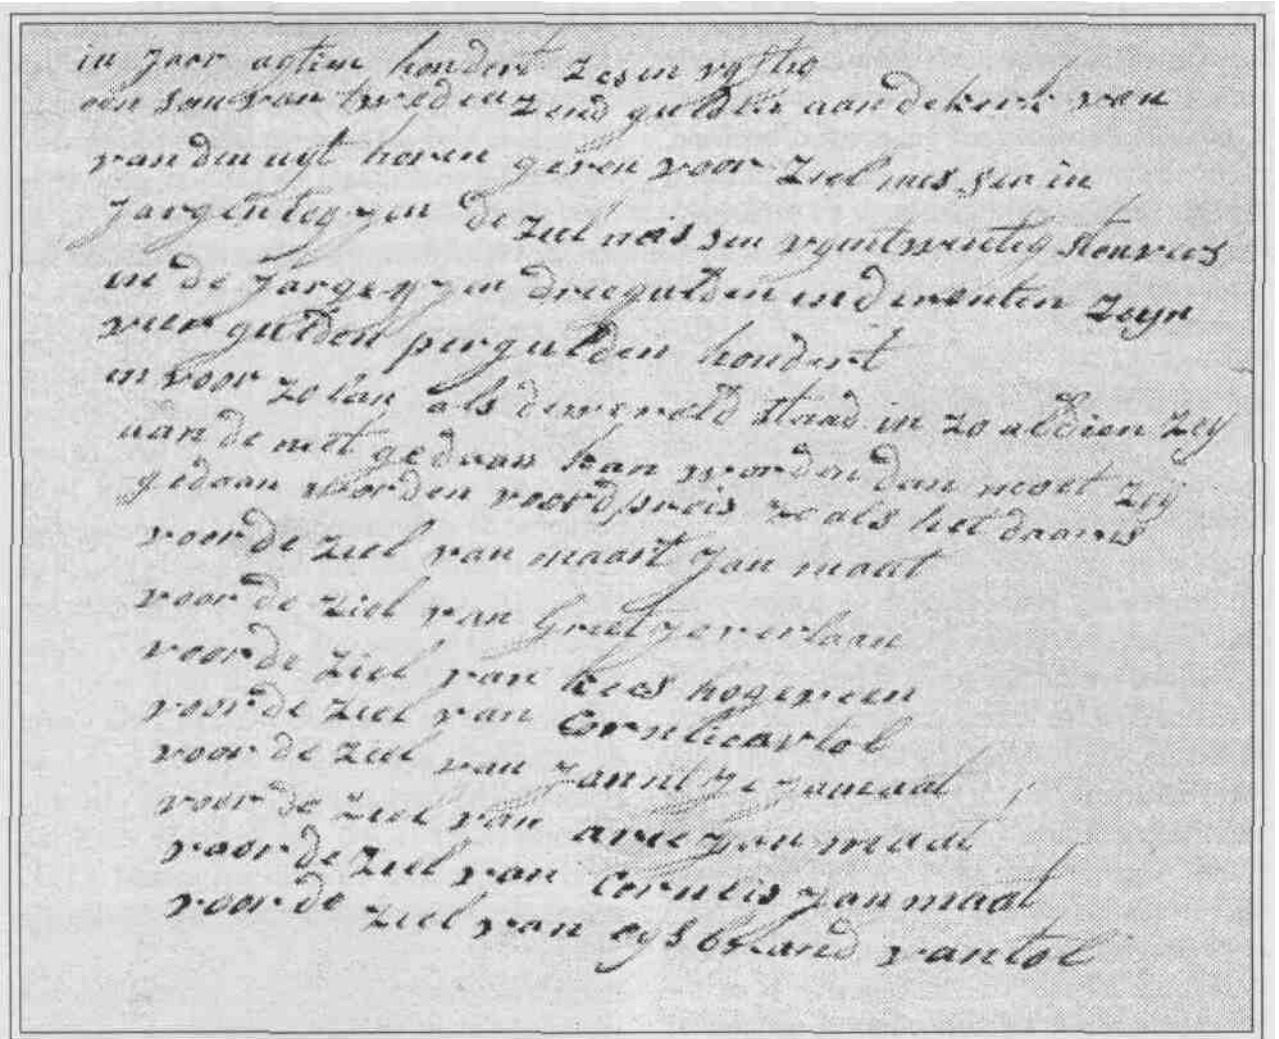 in Jaar agtien hondert zes en vyftig
een som van twe duizend gulden aan de kerk van
van den uyt hoven geven voor ziel mis sen in
Jargenteyyen de ziel mis sen vyentwentig stouvers
in de Jargeyyen driegulden en de renten zeyn
vier gulden per gulden hondert
en voor zo lan als de wereld staad in zo aldien zey
aan de niet gedaan kan worden dan moet zeij
gedaan worden voor d preis zo als het daar is
voor de ziel van maart Jan maat
voor de ziel van Grietje verlaan
voor de ziel van kees hogeveen
voor de ziel van Cornlieavtol
voor de ziel van Jannitje Jamaat
voor de ziel van arie Jan maat
voor de ziel van Cornelis Jan maat
voor de ziel van eysbrand van tol